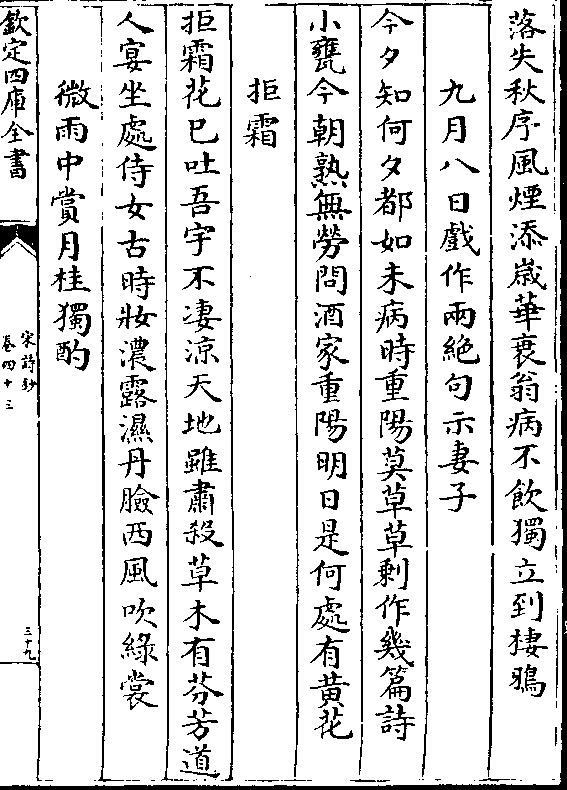 落失秋序風煙添嵗華衰翁病不飲獨立到棲鴉
九月八日戲作兩絶句示妻子
今夕知何夕都如未病時重陽莫草草剩作幾篇詩
小甕今朝熟無勞問酒家重陽明日是何處有黄花
拒霜
拒霜花已吐吾宇不淒涼天地雖肅殺草木有芬芳道
人宴坐處侍女古時妝濃露濕丹臉西風吹綠裳
微雨中賞月桂獨酌
欽定四庫全書
宋詩鈔
卷四十三
三十九